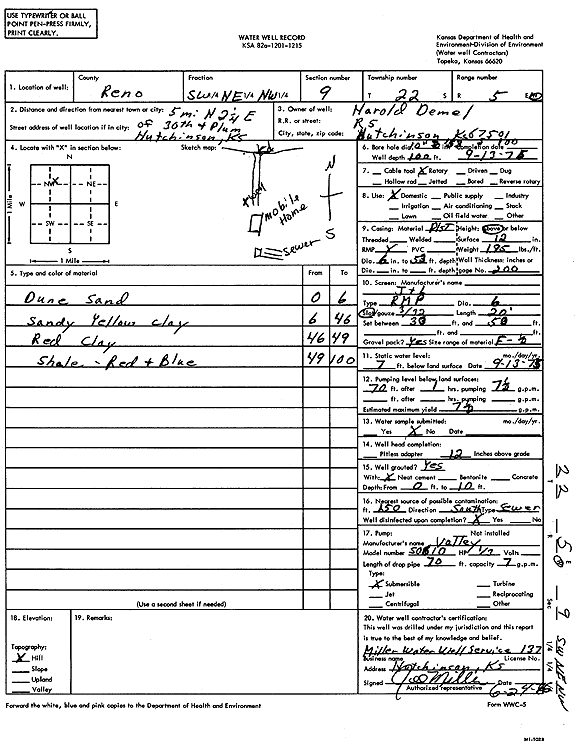 USE TYPEWRITER OR BALL
POINT PEN-PRESS FIRMLY,
PRINT CLEARLY.
WATER WELL RECORD
KSA 82a-1201-1215
Kansas Department of Health and
Environment-Division of Environment
(Water well Contractors)
Topeka, Kansas 66620
1. Location of well:
County
Reno
Fraction
SW¼ NE¼ NW¼
Section number
9
Township number
T 22 S
Range number
R 5 E/W
2. Distance and direction from nearest town or city: 5 mi N 2¼ E
Street address of well location if in city: of 30th + Plum
Hutchinson, Ks
3. Owner of well: Harold Demel
R.R. or street: R 5
City, state, zip code: Hutchinson Ks 67501
4. Locate with "X" in section below:
Sketch map:
N
NW
NE
W
E
SW
SE
S
1 Mile
1 Mile
N
S
mobile
Home
Sewer
6. Bore hole dia. Completion date
Well depth 100 ft. 9-13-75
7. Cable tool X Rotary Driven Dug
Hollow rod Jetted Bored Reverse rotary
8. Use: X Domestic Public supply Industry
Irrigation Air conditioning Stock
Lawn Oil field water Other
9. Casing: Material Plst Height: Above or below
Threaded Welded Surface 12 in.
RMP X PVC Weight 185 lbs./ft.
Dia. 6 in. to 58 ft. depth Wall Thickness: inches or
Dia. in. to ft. depth gage No. 200
5. Type and color of material
From
To
Dune Sand 0 6
Sandy Yellow Clay 6 46
Red Clay 46 49
Shale - Red + Blue 49 100
10. Screen: Manufacturer's name
Type RMP Dia. 6
Slot/gauze 3/32 Length 20'
Set between 38 ft. and 58 ft.
ft. and ft.
Gravel pack? Yes Size range of material
11. Static water level: mo./day/yr.
7 ft. below land surface Date 9-13-75
12. Pumping level below land surfaces:
70 ft. after 1 hrs. pumping 7½ g.p.m.
ft. after hrs. pumping g.p.m.
Estimated maximum yield 7½ g.p.m.
13. Water sample submitted: mo./day/yr.
Yes X No Date
14. Well head completion:
Pitless adapter 12 Inches above grade
15. Well grouted? Yes
With: X Neat cement Bentonite Concrete
Depth: From 0 ft. to 10 ft.
16. Nearest source of possible contamination:
ft. 150 Direction South Type Sewer
Well disinfected upon completion? X Yes No
17. Pump: Not installed
Manufacturer's name Valley
Model number HP 1/2 Volts
Length of drop pipe 70 ft. capacity 7 g.p.m.
Type:
X Submersible Turbine
Jet Reciprocating
Centrifugal Other
(Use a second sheet if needed)
18. Elevation:
19. Remarks:
Topography:
X Hill
Slope
Upland
Valley
20. Water well contractor's certification:
This well was drilled under my jurisdiction and this report
is true to the best of my knowledge and belief.
Miller Water Well Service 137
Business name License No.
Address Hutchinson, Ks
Signed Date
Authorized representative
Forward the white, blue and pink copies to the Department of Health and Environment
Form WWC-5
22 - 5 - 9 SW NE NW
T R E Sec ¼ ¼ ¼